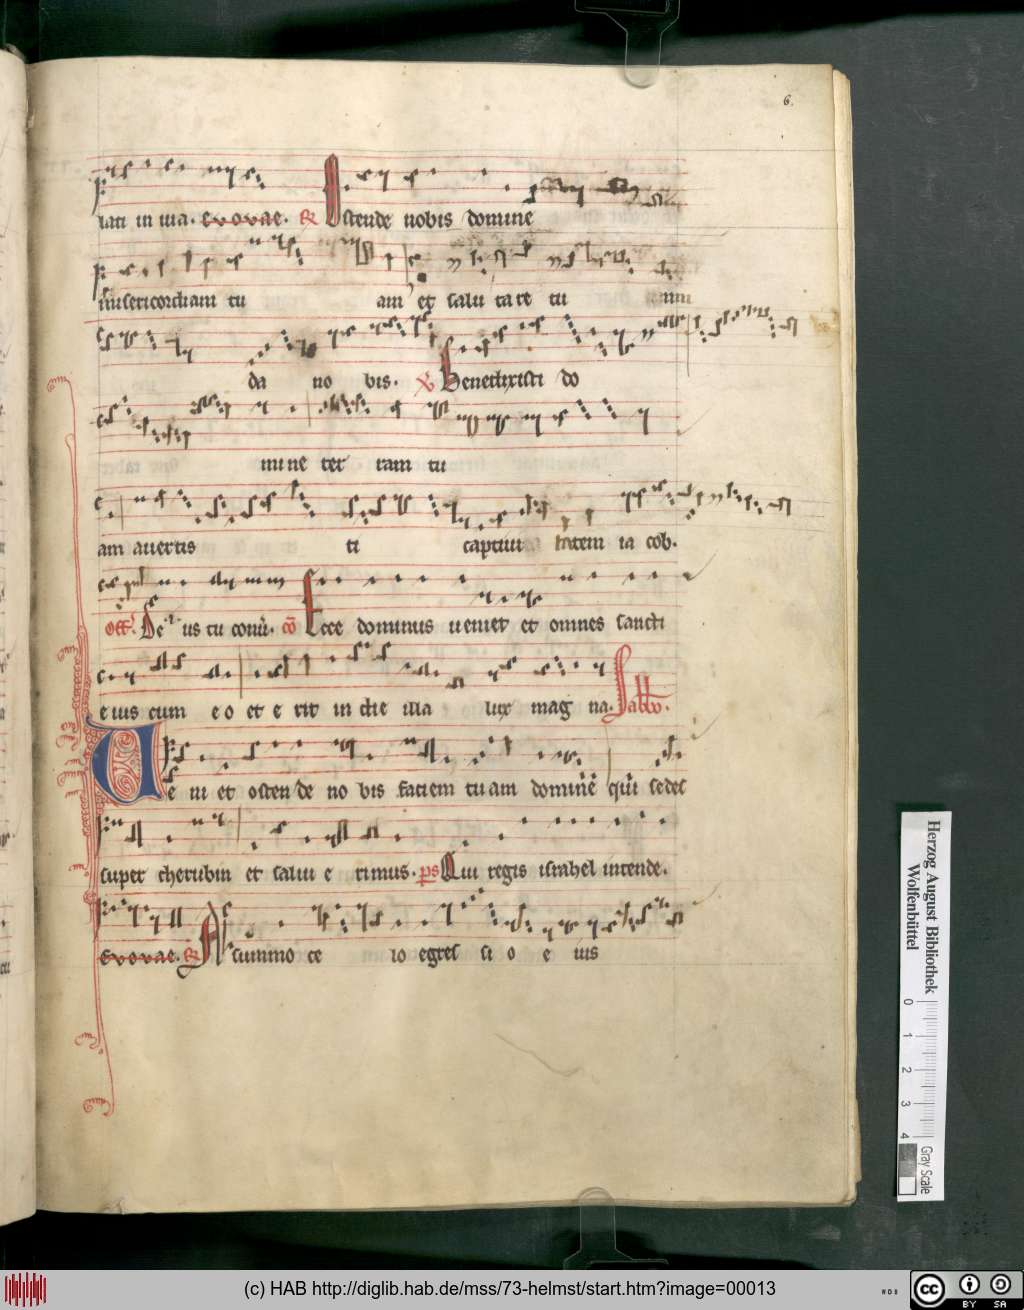 6.
lati in uia. evovae. R Ostende nobis domine
misericordiam tu am et salu tare tu um
da no bis. V Benedixisti do
mine ter ram tu
am auertis ti captiui tatem ia cob.
Off. De us tu conu. co Ecce dominus ueniet et omnes sancti
eius cum e o et e rit in die illa lux mag na. Sabbo.
Ue ni et ostende no bis faciem tuam domine qui sedes
super cherubin et salui e rimus. ps Qui regis israhel intende.
evovae. R A summo ce lo egres si o e ius
Herzog August Bibliothek
Wolfenbüttel
0 1 2 3 4
Gray Scale
(c) HAB http://diglib.hab.de/mss/73-helmst/start.htm?image=00013
cc BY SA